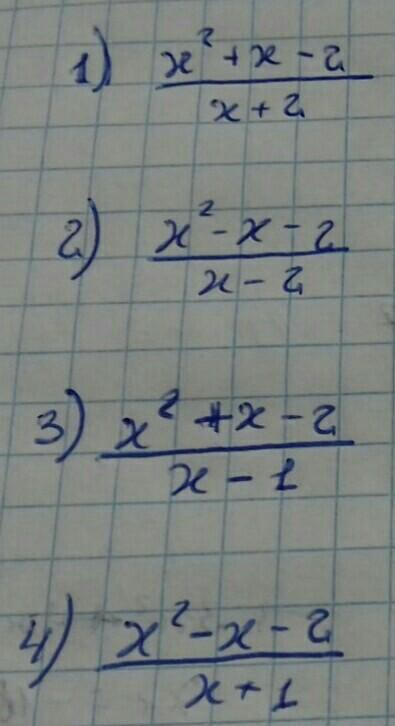 1) x² + x - 2
x + 2
2) x² - x - 2
x - 2
3) x² + x - 2
x - 1
4) x² - x - 2
x + 1